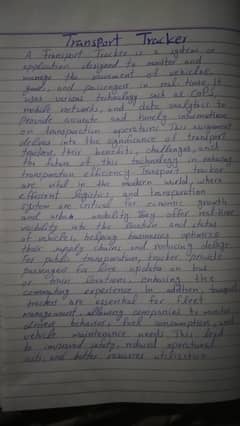 Transport Tracker
A Transport Tracker is a system or
application designed to monitor and
manage the movement of vehicles,
goods, and passengers in real-time. It
uses various technology such as GPS,
mobile networks, and data analytics to
provide accurate and timely information
on transportation operations. This assignment
delves into the significance of transport
trackers, their benefits, challenges, and
the future of this technology in enhancing
transportation efficiency. Transport tracker
are vital in the modern world, where
efficient logistics and transportation
system are critical for economic growth
and urban mobility. They offer real-time
visibility into the location and status
of vehicles, helping businesses optimize
their supply chains and reducing delays.
For public transportation, tracker provide
passengers for live updates on bus
or train locations, enhancing the
commuting experience. In addition, transport
trackers are essential for fleet
management, allowing companies to monitor
driver behavior, fuel consumption, and
vehicle maintenance needs. This lead
to improved safety, reduced operational
costs, and better resource utilization.